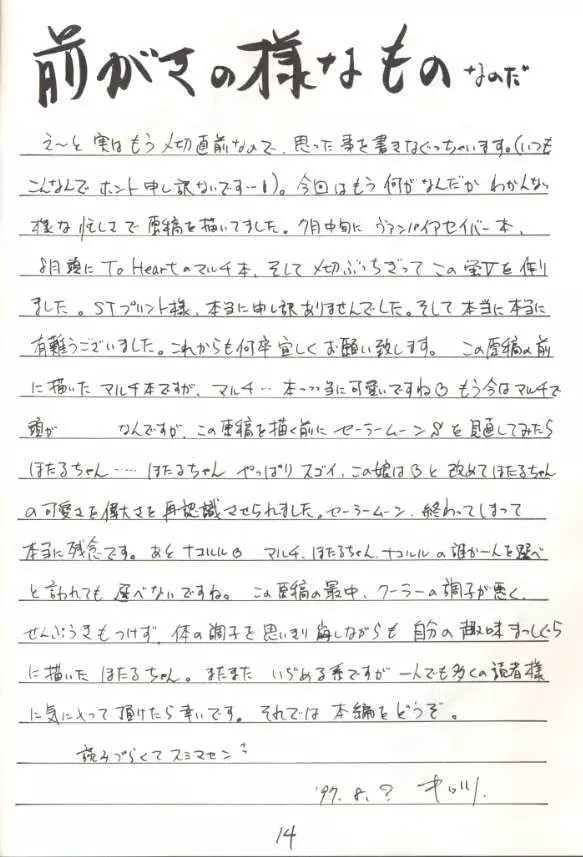 前がきの様なものなのだ
え〜と 実はもう〆切直前なので、思った事を書きなぐっちゃいます。(いつも
こんなんで ホント申し訳ないです…!)。今回はもう何がなんだか わかんない
様な忙しさで原稿を描いてました。7月中旬に ヴァンパイアセイバー本、
8月頭に To Heartのマルチ本、そして〆切ぶっちぎって この蛍Vを作り
ました。STプリント様、本当に申し訳ありませんでした。そして本当に本当に
有難うございました。これからも何卒宜しくお願い致します。 この原稿の前
に描いた マルチ本ですが、マルチ… 本っっ当に可愛いですね もう今はマルチで
頭が なんですが、この原稿を描く前に セーラームーンSを見直してみたら
ほたるちゃん…… ほたるちゃん やっぱり スゴイ、この娘は と 改めてほたるちゃん
の可愛さを偉大さを再認識させられました。セーラームーン、終わってしまって
本当に残念です。あと ナコルル マルチ、ほたるちゃん、ナコルルの誰か一人を選べ
と言われても 選べないですね。 この原稿の最中、クーラーの調子が悪く、
せんぷうきもつけず、体の調子を思いきり崩しながらも 自分の趣味まっしぐら
に描いた ほたるちゃん。またまた いぢめる系ですが 一人でも多くの読者様
に気に入って頂けたら幸いです。それでは 本編をどうぞ。
読みづらくてスミマセン
'97. 8. ?
14